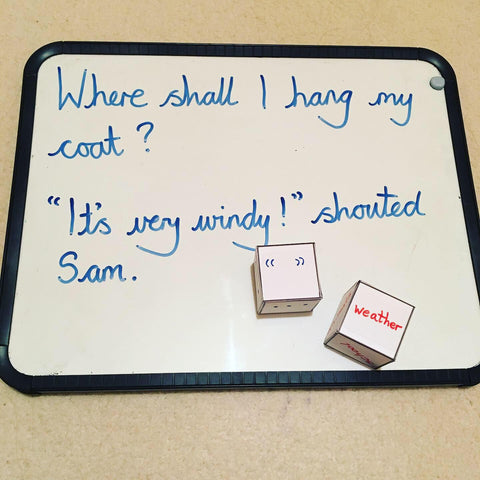 Where shall I hang my
coat?
"It's very windy!" shouted
Sam.
“ ”
weather